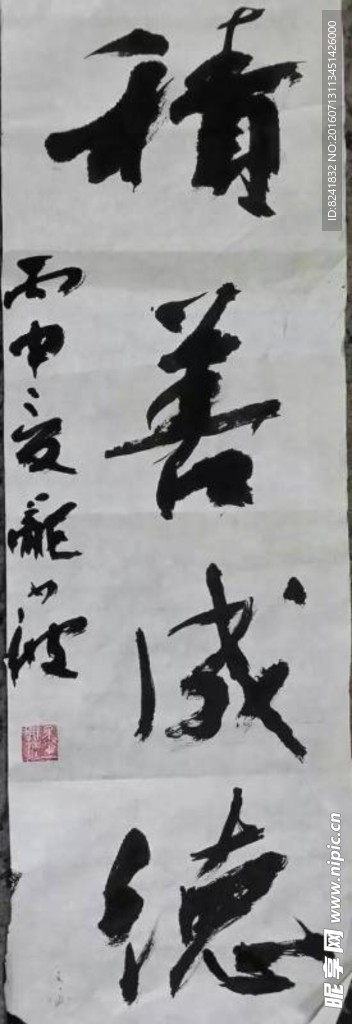 積善成德
丙申夏龍少波
ID:8241832 NO:20160713113451426000
昵享网 www.nipic.cn